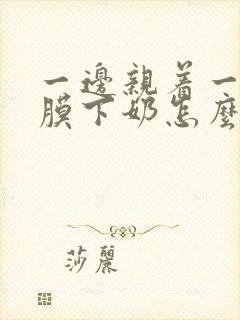 一邊親着一
膜下奶怎麼
莎麗